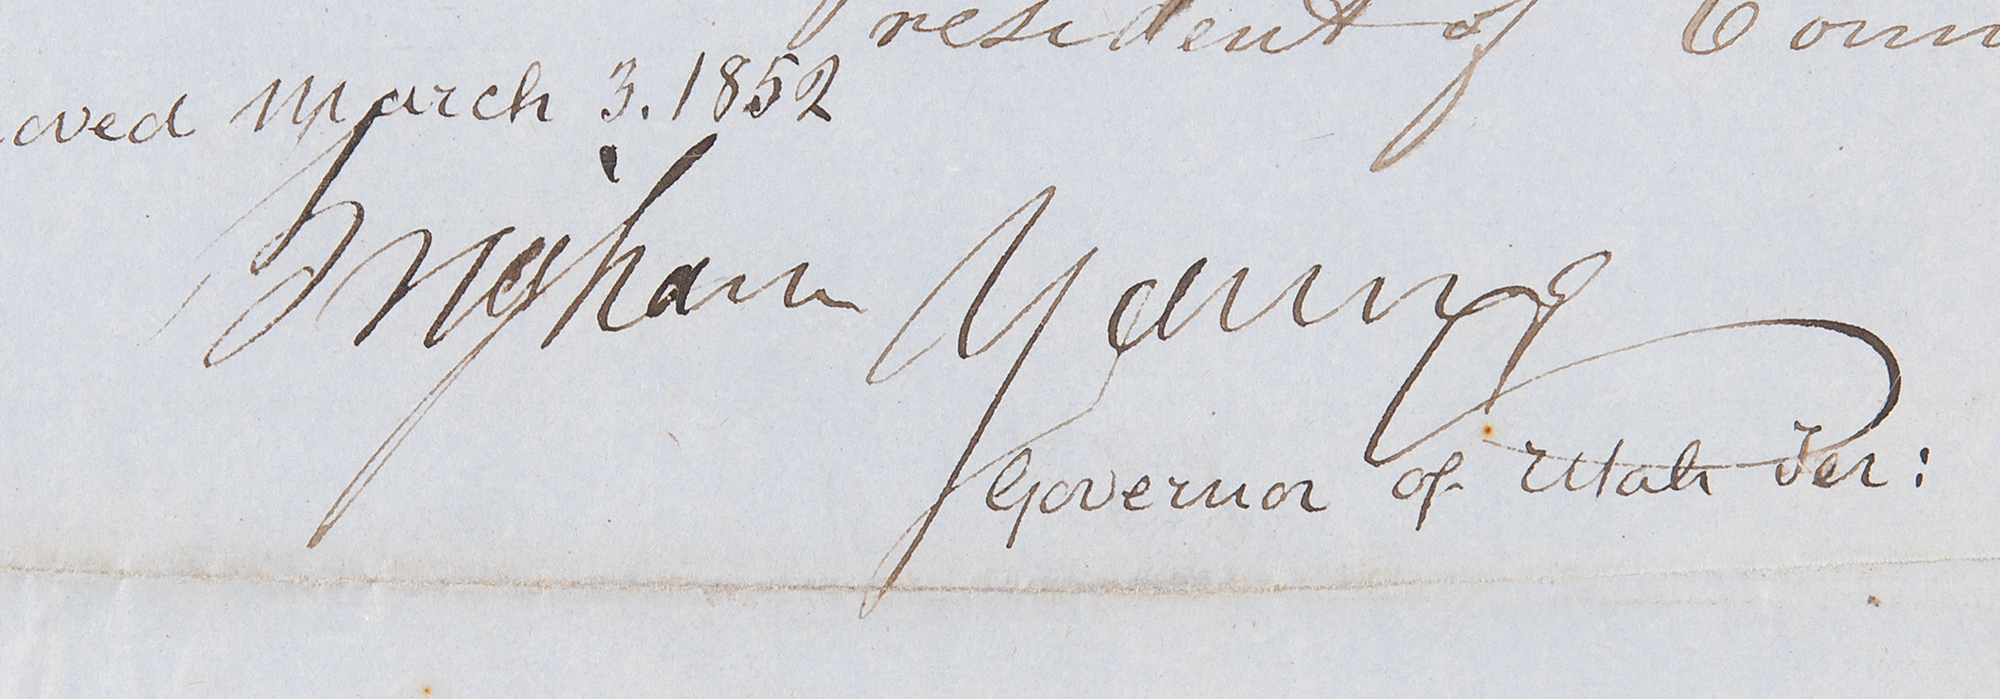 resident of Coun
oved March 3. 1852
Brigham Young
Governor of Utah Ter: